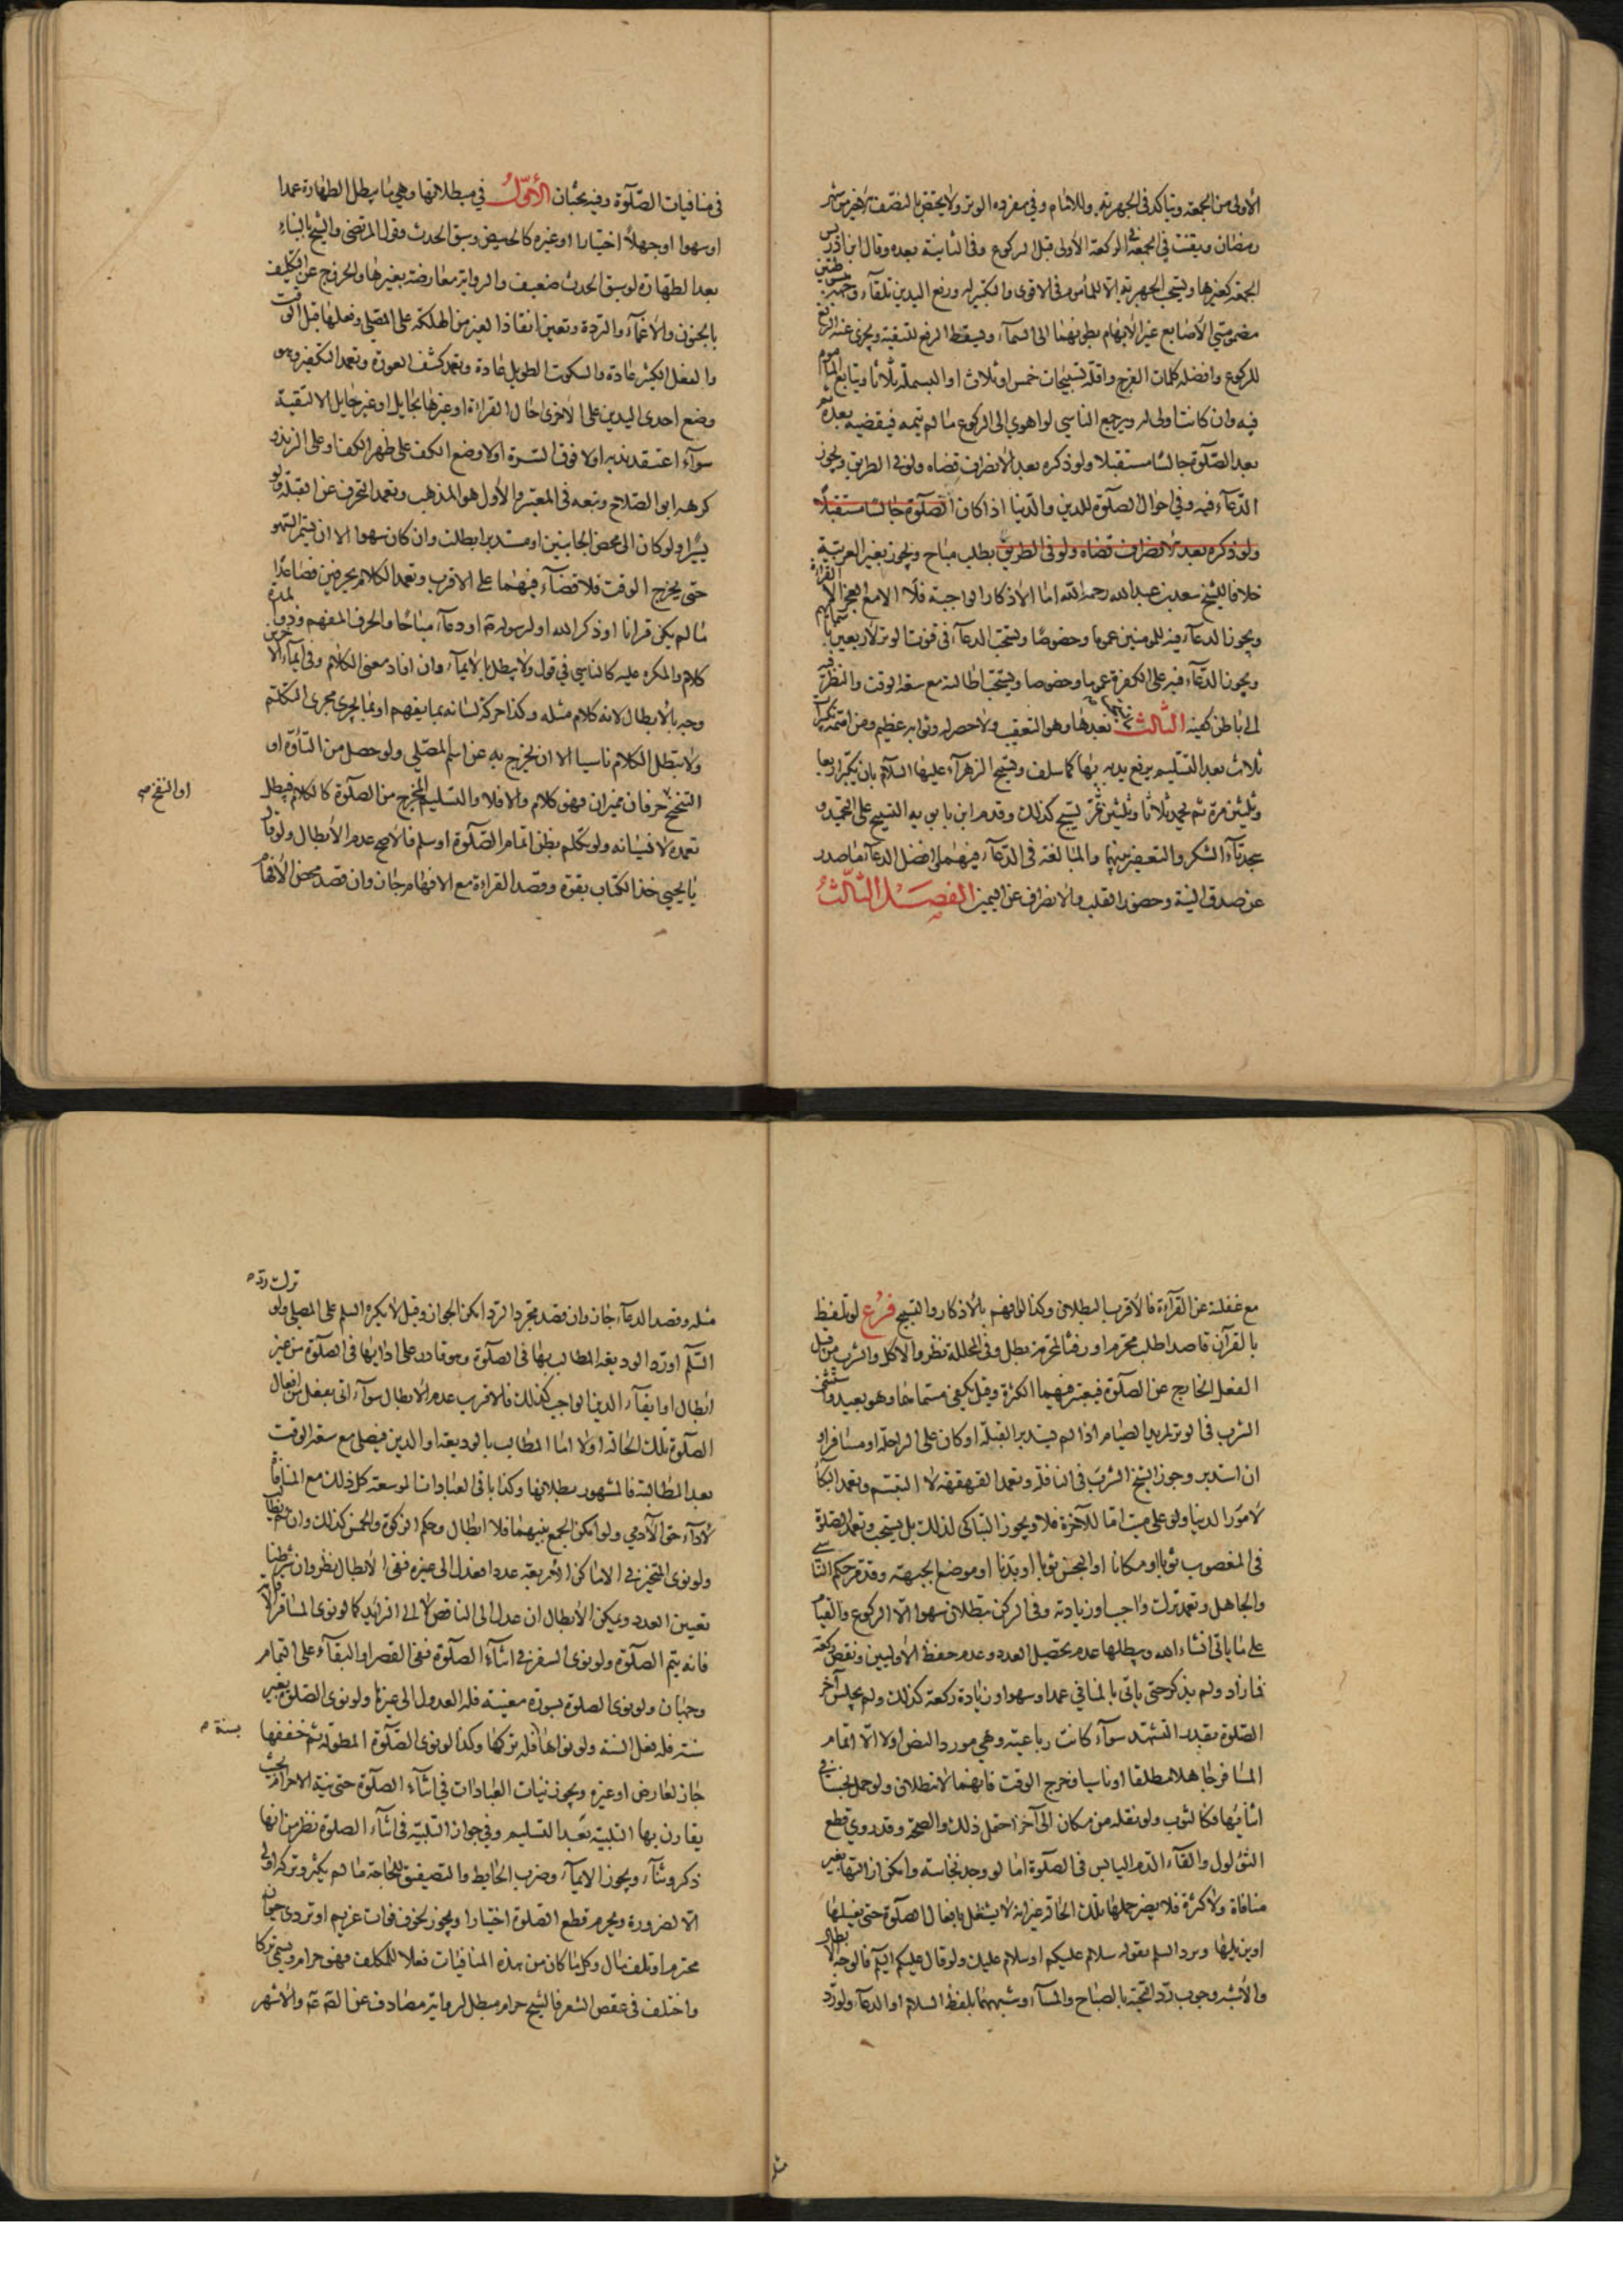 الأولى من الجمعة ويتأكد في الجهرية وللإمام وفي مفردة الوتر ولا يختص بالنصف الأخير من شهر
رمضان ويقنت في الجمعة في الركعة الأولى قبل الركوع وفي الثانية بعده وقال ابن ادريس
الجمعة كغيرها ويستحب الجهر به الا للمأموم في الاقوى والتكبير له ورفع اليدين تلقاء وجهه مبسوطتين
مضمومتي الأصابع غير الابهام بطونهما الى السماء ويسقط الرفع للتقية ويجزي عنه الرفع
للركوع وافضله كلمات الفرج واقله تسبيحات خمس او ثلاث او البسملة ثلاثا ويتابع المأموم
فيه وان كانت اولى له ويرجع الناسي لو اهوى الى الركوع ما لم يتمه فيقضيه بعده ثم
بعد الصلوة جالسا مستقبلا ولو ذكره بعد الانصراف قضاه ولو في الطريق ويجوز
الدعاء فيه وفي احوال الصلوة للدين والدنيا اذا كان الصلوة جالسا مستقبلا
ولو ذكره بعد الانصراف قضاه ولو في الطريق بطلب مباح ويجوز بغير العربية
خلافا للشيخ سعد بن عبد الله رحمه الله اما الاذكار الواجبة فلا الا مع العجز القراءة
ويجوز الدعاء فيه للمومنين عموما وخصوصا ويستحب الدعاء في قنوت الوتر لأربعين باسمائهم
ويجوز الدعاء فيه على الكفرة عموما وخصوصا ويستحب اطالته مع سعة الوقت والنظر فيه
الى باطن كفيه الثالث بعدها وهو التعقيب ولا حصر له وثوابه عظيم ومن اهمه تكبيرات
ثلاث بعد التسليم يرفع يديه بها كما سلف وتسبيح الزهراء عليها السلام بان يكبر اربعا
وثلثين مرة ثم يحمد ثلاثا وثلثين ثم يسبح كذلك وقدم ابن بابويه التسبيح على التحميد و
سجدتاء الشكر والتعفير بينهما والمبالغة في الدعاء فيهما وافضل الدعاء ما صدر
عن صدق النية وحضور القلب والانصراف عن اليمين الفصل الثالث
في منافيات الصلوة وفيه بحثان الأول في مبطلاتها وهي ما يبطل الطهارة عمدا
او سهوا او جهلا اختيارا او غيره كالحيض وسبق الحدث وقول المرتضى والشيخ البناء
بعد الطهارة لو سبق الحدث ضعيف والرواية معارضة بغيرها والخروج عن التكليف
بالجنون والاغماء والردة وتعين انقاذ الغير من الهلكة على المصلي وفعلها قبل الوقت
والفعل الكثير عادة والسكوت الطويل عادة وتعمد كشف العورة وتعمد التكفير وهو
وضع احدى اليدين على الاخرى حال القراءة او غيرها بحايل او غير حايل الا لتقية
سواء اعتقد ندبه او لا فوق السرة او لا وضع الكف على ظهر الكف او على الزند و
كرهه ابو الصلاح وتبعه في المعتبر والأول هو المذهب وتعمد التحرف عن القبلة ولو
يسيرا ولو كان الى محض الجانبين او مستدبرا بطلت وان كان سهوا الا ان يستمر السهو
حتى يخرج الوقت فلا قضاء فيهما على الاقرب وتعمد الكلام بحرفين فصاعدا
ما لم يكن قرانا او ذكر الله او لرسوله او دعاء مباحا والحرف المفهم وذو المدة
كلام والمكره عليه كالناسي في قول ولا يبطل بالايماء وان افاد معنى الكلام وفي ايماء الاخرس
وجه بالابطال لانه كلام مثله وكذا حركة لسانه بما يفهم او بما يجرى مجرى التكلم
ولا تبطل الكلام ناسيا الا ان يخرج به عن اسم المصلي ولو حصل من التأوه او
التنحنح حرفان مميزان فهو كلام والا فلا والتسليم المخرج من الصلوة كالكلام فيبطل
او النفخ صح
تعمده لا نسيانه ولو تكلم بظن اتمام الصلوة او سلم فالاصح عدم الابطال ولو قال
يا يحيى خذ الكتاب بقوة وقصد القراءة مع الافهام جاز وان قصد محض الافهام
مع غفلته عن القراءة فالاقرب البطلان وكذا لو افهم بالأذكار والتسبيح فرع لو تلفظ
بالقرآن قاصدا طلب محرم او رفث المحرمة بطل وفي المحللة نظر والاكل والشرب من قبل
الفعل الخارج عن الصلوة فيعتبر فيهما الكثرة وقيل يكفي مسماهما وهو بعيد واستثنى
الشرب في الوتر لمريد الصيام اذا لم يستدبر القبلة او كان على الراحلة او مسافرا و
ان استدبر وجوز الشيخ الشرب في النافلة وتعمد القهقهة لا التبسم وتعمد البكاء
لأمور الدنيا ولو على ميت اما للآخرة فلا ويجوز التباكى لذلك بل يستحب وتعمد الصلوة
في المغصوب ثوبا او مكانا او النجس ثوبا او بدنا او موضع الجبهة وقد مر حكم الناسي
والجاهل وتعمد ترك واجب او زيادته وفي الركن تبطل ان سهوا الا الركوع والقيام
على ما ياتي انشاء الله ويبطلها عدم تحصيل العدد وعدم حفظ الأوليين ونقص ركعة
فما زاد ولم يذكر حتى ياتي بالمنافي عمدا وسهوا وزيادة ركعة كذلك ولم يجلس آخر
الصلوة بقدر التشهد سواء كانت رباعية وهي مورد النص او لا الا اتمام
المسافر جاهلا مطلقا او ناسيا وخرج الوقت فانهما لا تبطلان ولو حمل نجسا في
اثنائها فكالثوب ولو نقله من مكان الى آخر احتمل ذلك والصحة وقد روي قطع
الثؤلول والقاء الدم اليابس في الصلوة اما لو وجد نجاسة وامكن ازالتها بغير
منافاة ولا كثرة فلا يضر حملها تلك الحالة غير انه لا يشتغل بافعال الصلوة حتى يغسلها
او يزيلها ويرد السلم بقوله سلام عليكم او سلام عليك ولو قال عليكم السلم فالوجه الابطال
والأشبه وجوب رد التحية بالصباح والمساء وشبههما بلفظ السلام او الدعاء ولو رد
مثله
ترك رده
مثله وقصد الدعاء جاز وان قصد مجرد الرد امكن الجواز وقيل لا يكره السلم على المصلي ولو
السلم او رد الوديعة المطالب بها في الصلوة وهو قادر على ادائها في الصلوة من غير
ابطال او ايفاء الدين الواجب كذلك فالاقرب عدم الابطال سواء اتى بفعل من افعال
الصلوة تلك الحالة او لا اما المطالب بالوديعة او الدين فيصلي مع سعة الوقت
بعد المطالبة فالمشهور بطلانها وكذا باقي العبادات الموسعة كل ذلك مع المنافاة
لأداء حق الآدمي ولو امكن الجمع بينهما فلا ابطال وحكم الزكوة والخمس كذلك وان لم يطالب
ولو نوى المتخير في الاماكن الأربعة عددا فعدل الى غيره ففي الابطال نظر وان شرطنا
تعيين العدد ويمكن الابطال ان عدل الى الناقص لا الى الزايد كما لو نوى المسافر الاقامة
فانه يتم الصلوة ولو نوى السفر في اثناء الصلوة ففي القصر او البقاء على التمام
وجهان ولو نوى الصلوة بسورة معينة فله العدول الى غيرها ولو نوى الصلوة بغير
سنة فله فعل السنة ولو نواها فله تركها وكذا لو نوى الصلوة المطولة ثم خففها
بسنة
جاز لعارض او غيره ويجوز نيات العبادات في اثناء الصلوة حتى نية الاحرام بحيث
يقارن بها التلبية بعد التسليم وفي جواز التلبية في اثناء الصلوة نظر من انها
ذكر وثناء ويجوز الايماء وضرب الحايط والتصفيق للحاجة ما لم يكثر وتركه اولى
الا لضرورة ويحرم قطع الصلوة اختيارا ويجوز لخوف فوات غريم او تردى حيوان
محترم او تلف مال وكل ما كان من هذه المنافيات فعلا للمكلف فهو حرام ويسمى تركا
واختلف في عقص الشعر فالشيخ حرام مبطل لرواية مصادف عن الصادق ع والاشهر